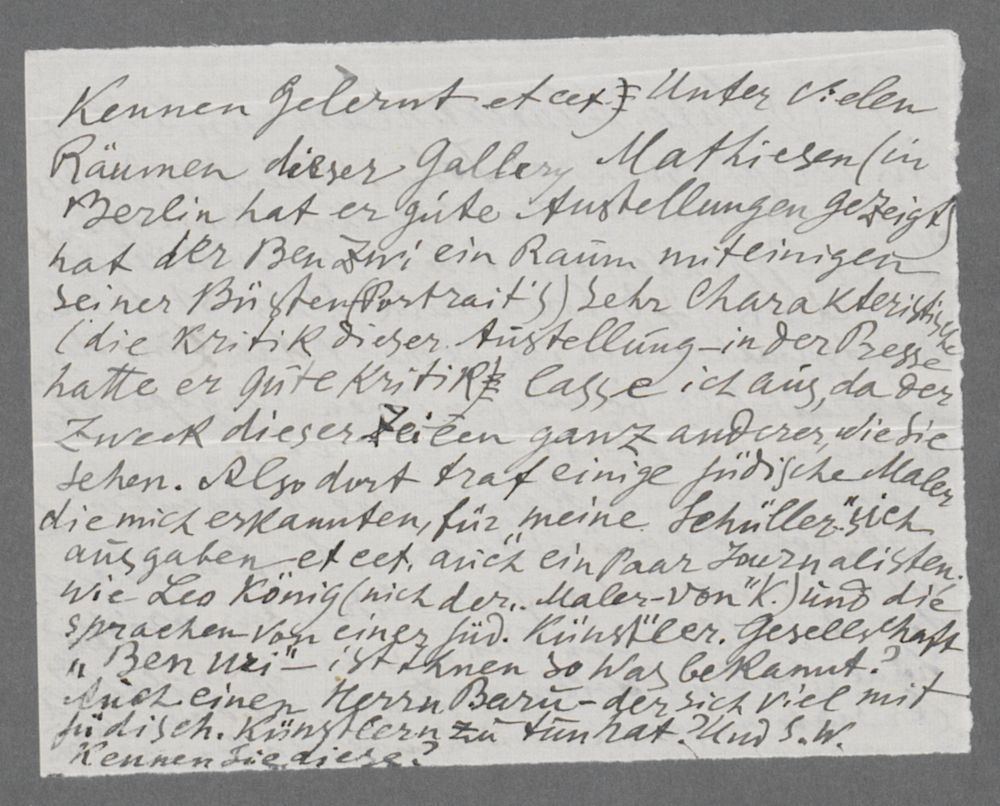 Kennen Gelernt et cet) Unter vielen
Räumen dieser Gallery Mathiesen (in
Berlin hat er gute Austellungen gezeigt)
hat der Ben Zwi ein Raum mit einigen
seiner Büsten (Portrait's) sehr Charakteristische
(die Kritik dieser Austellung – in der Presse
hatte er gute Kritik lasse ich aus, da der
Zweck dieser Zeilen ganz anderer, wie Sie
sehen. Also dort traf einige jüdische Maler
die mich erkannten, für meine „Schüller" sich
ausgaben – et cet. auch ein Paar Journalisten.
wie Leo König (nich der „Maler – von" K.) und die
sprachen von einer jüd. Künstler. Gesellschaft
„Ben Uri" – ist Ihnen so was bekannt?
Auch einen Herrn Baru – der sich viel mit
jüdisch. Künstlern zu tun hat? Und s. w.
Kennen Sie diese?